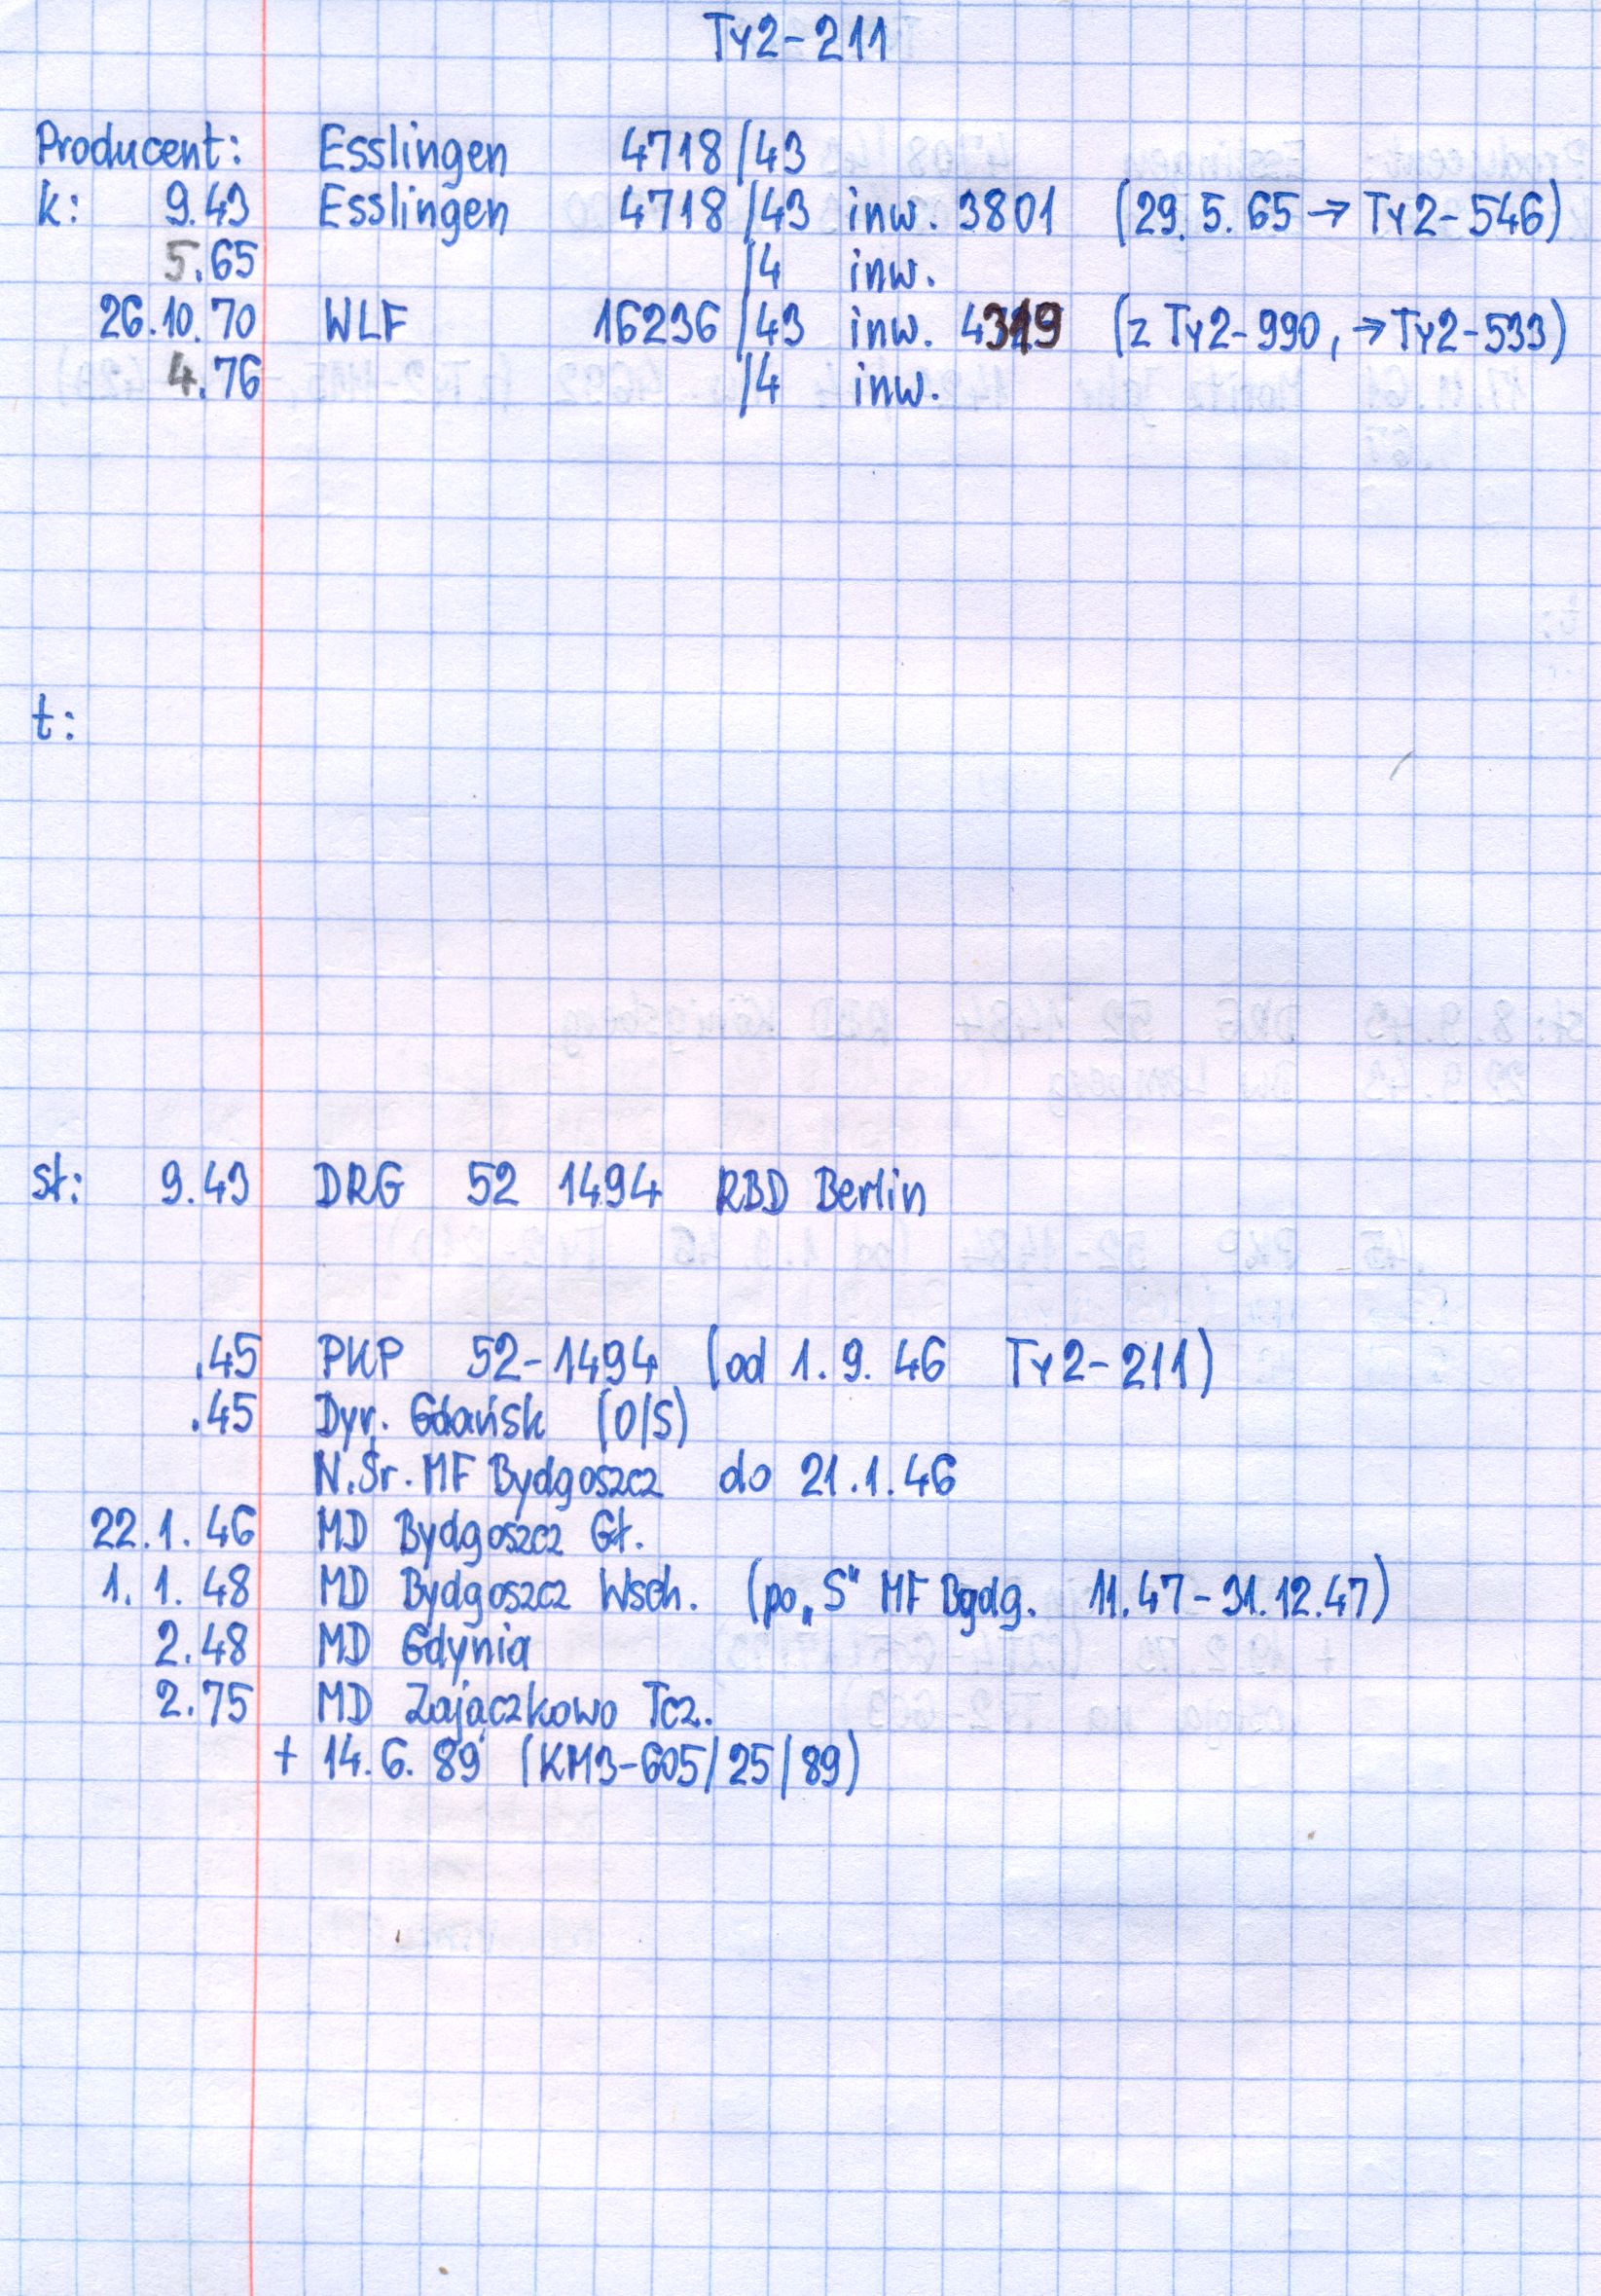 Ty2-211
Producent: Esslingen 4718/43
k: 9.43 Esslingen 4718/43 inw. 3801 (29.5.65 → Ty2-546)
5.65 /4 inw.
26.10.70 WLF 16236/43 inw. 4319 (z Ty2-990, → Ty2-533)
4.76 /4 inw.
t:
st: 9.43 DRG 52 1494 RBD Berlin
.45 PKP 52-1494 (od 1.9.46 Ty2-211)
.45 Dyr. Gdańsk (O/S)
N.Śr. MF Bydgoszcz do 21.1.46
22.1.46 MD Bydgoszcz Gł.
1.1.48 MD Bydgoszcz Wsch. (po „S" MF Bydg. 11.47-31.12.47)
2.48 MD Gdynia
2.75 MD Zajączkowo Tcz.
+ 14.6.89 (KM3-605/25/89)